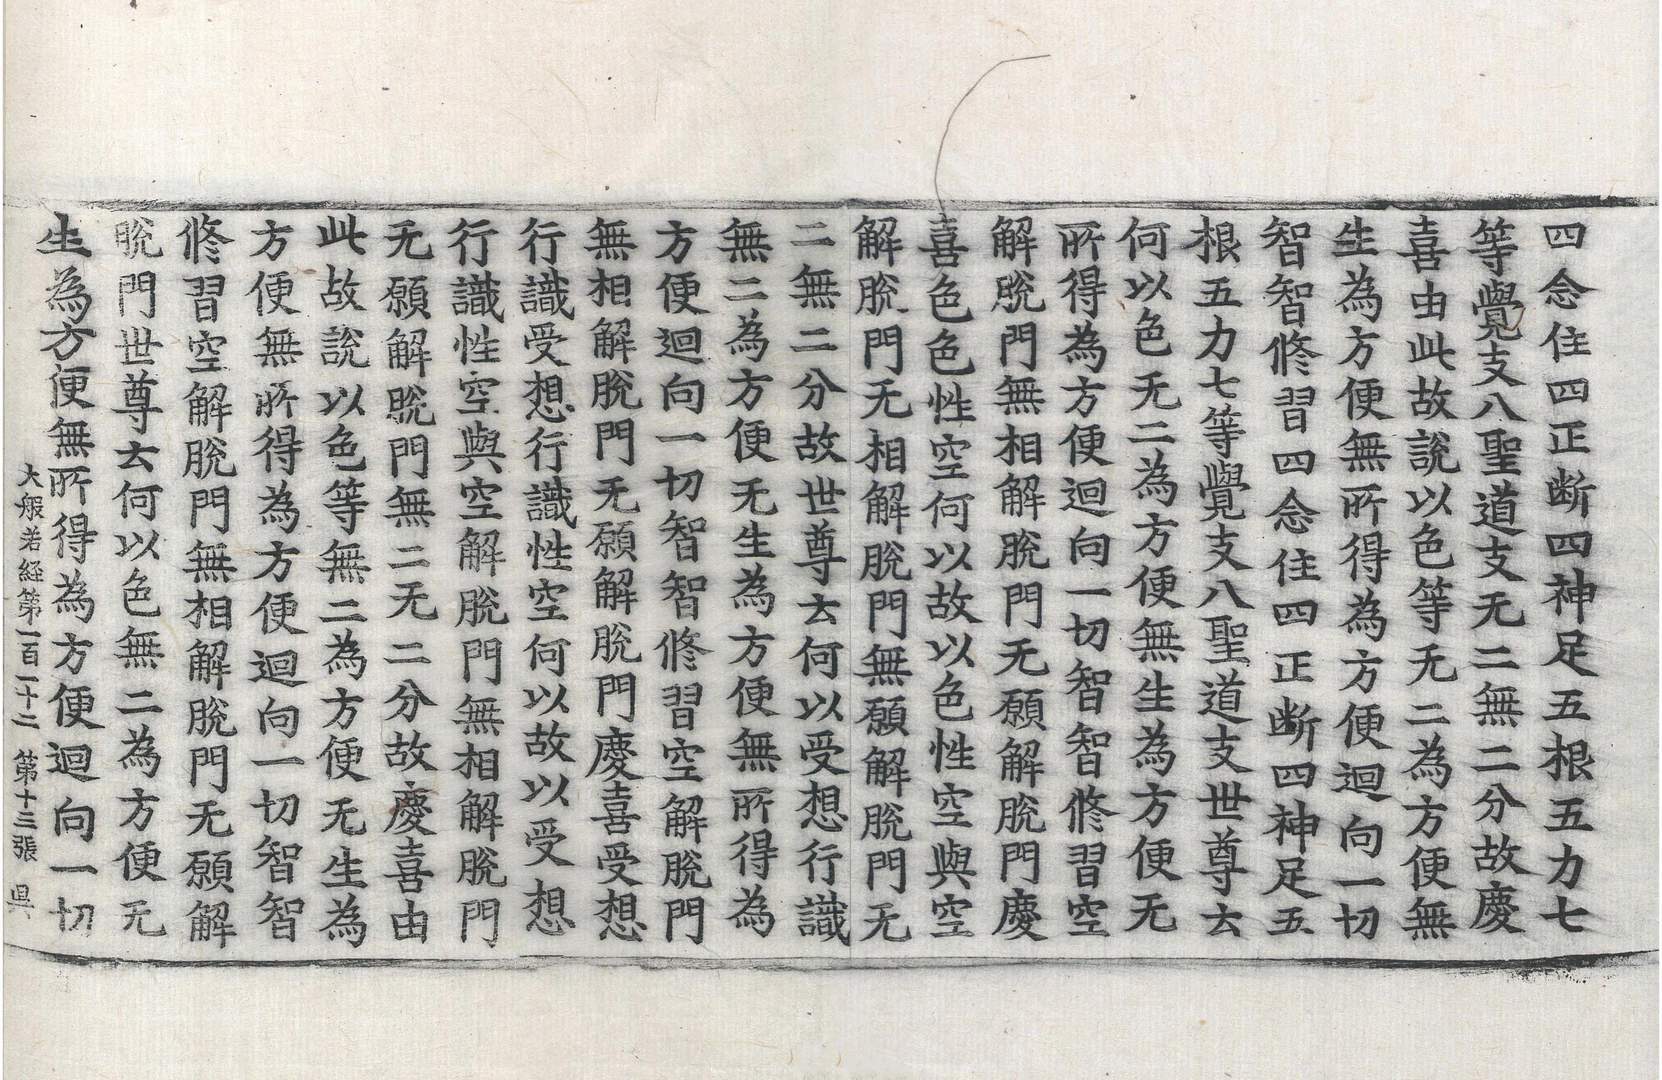 四念住四正断四神足五根五力七
等覺支八聖道支无二無二分故慶
喜由此故說以色等无二為方便無
生為方便無所得為方便迴向一切
智智修習四念住四正断四神足五
根五力七等覺支八聖道支世尊云
何以色无二為方便無生為方便无
所得為方便迴向一切智智修習空
解脫門無相解脫門无願解脫門慶
喜色色性空何以故以色性空與空
解脫門无相解脫門無願解脫門无
二無二分故世尊云何以受想行識
無二為方便无生為方便無所得為
方便迴向一切智智修習空解脫門
無相解脫門无願解脫門慶喜受想
行識受想行識性空何以故以受想
行識性空與空解脫門無相解脫門
无願解脫門無二无二分故慶喜由
此故說以色等無二為方便无生為
方便無所得為方便迴向一切智智
修習空解脫門無相解脫門无願解
脫門世尊云何以色無二為方便无
生為方便無所得為方便迴向一切
大般若経第一百一十二 第十三張 昃